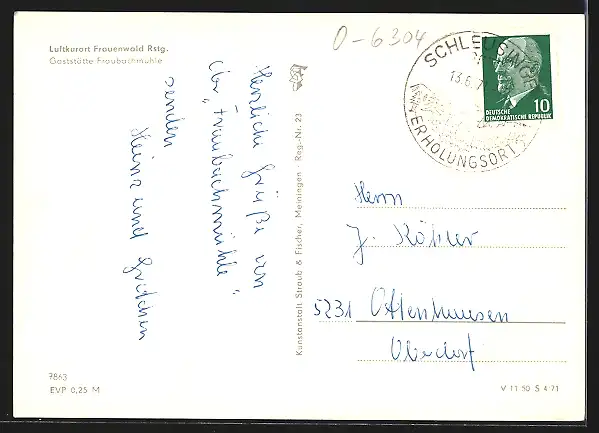 Luftkurort Frauenwald Rstg.
Gaststätte Fraubachmühle
Herzliche Grüße von
der „Fraubachmühle"
senden
Heinz und Gretchen
7863
EVP 0,25 M
Kunstanstalt Straub & Fischer, Meiningen · Reg.-Nr. 23
0-6304
SCHLEUSINGEN
13.6.71
ERHOLUNGSORT
10
DEUTSCHE
DEMOKRATISCHE REPUBLIK
Herrn
J. Köhler
5231 Ottenhausen
Oberdorf
V 11 50 S 4 71